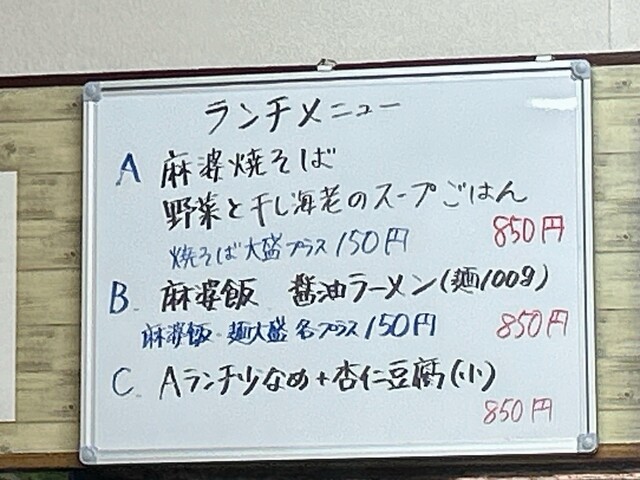 ランチメニュー
A 麻婆焼そば
野菜と干し海老のスープごはん
850円
焼そば大盛プラス150円
B 麻婆飯 醤油ラーメン(麺100g)
麻婆飯・麺大盛 各プラス150円
850円
C Aランチ少なめ+杏仁豆腐(小)
850円